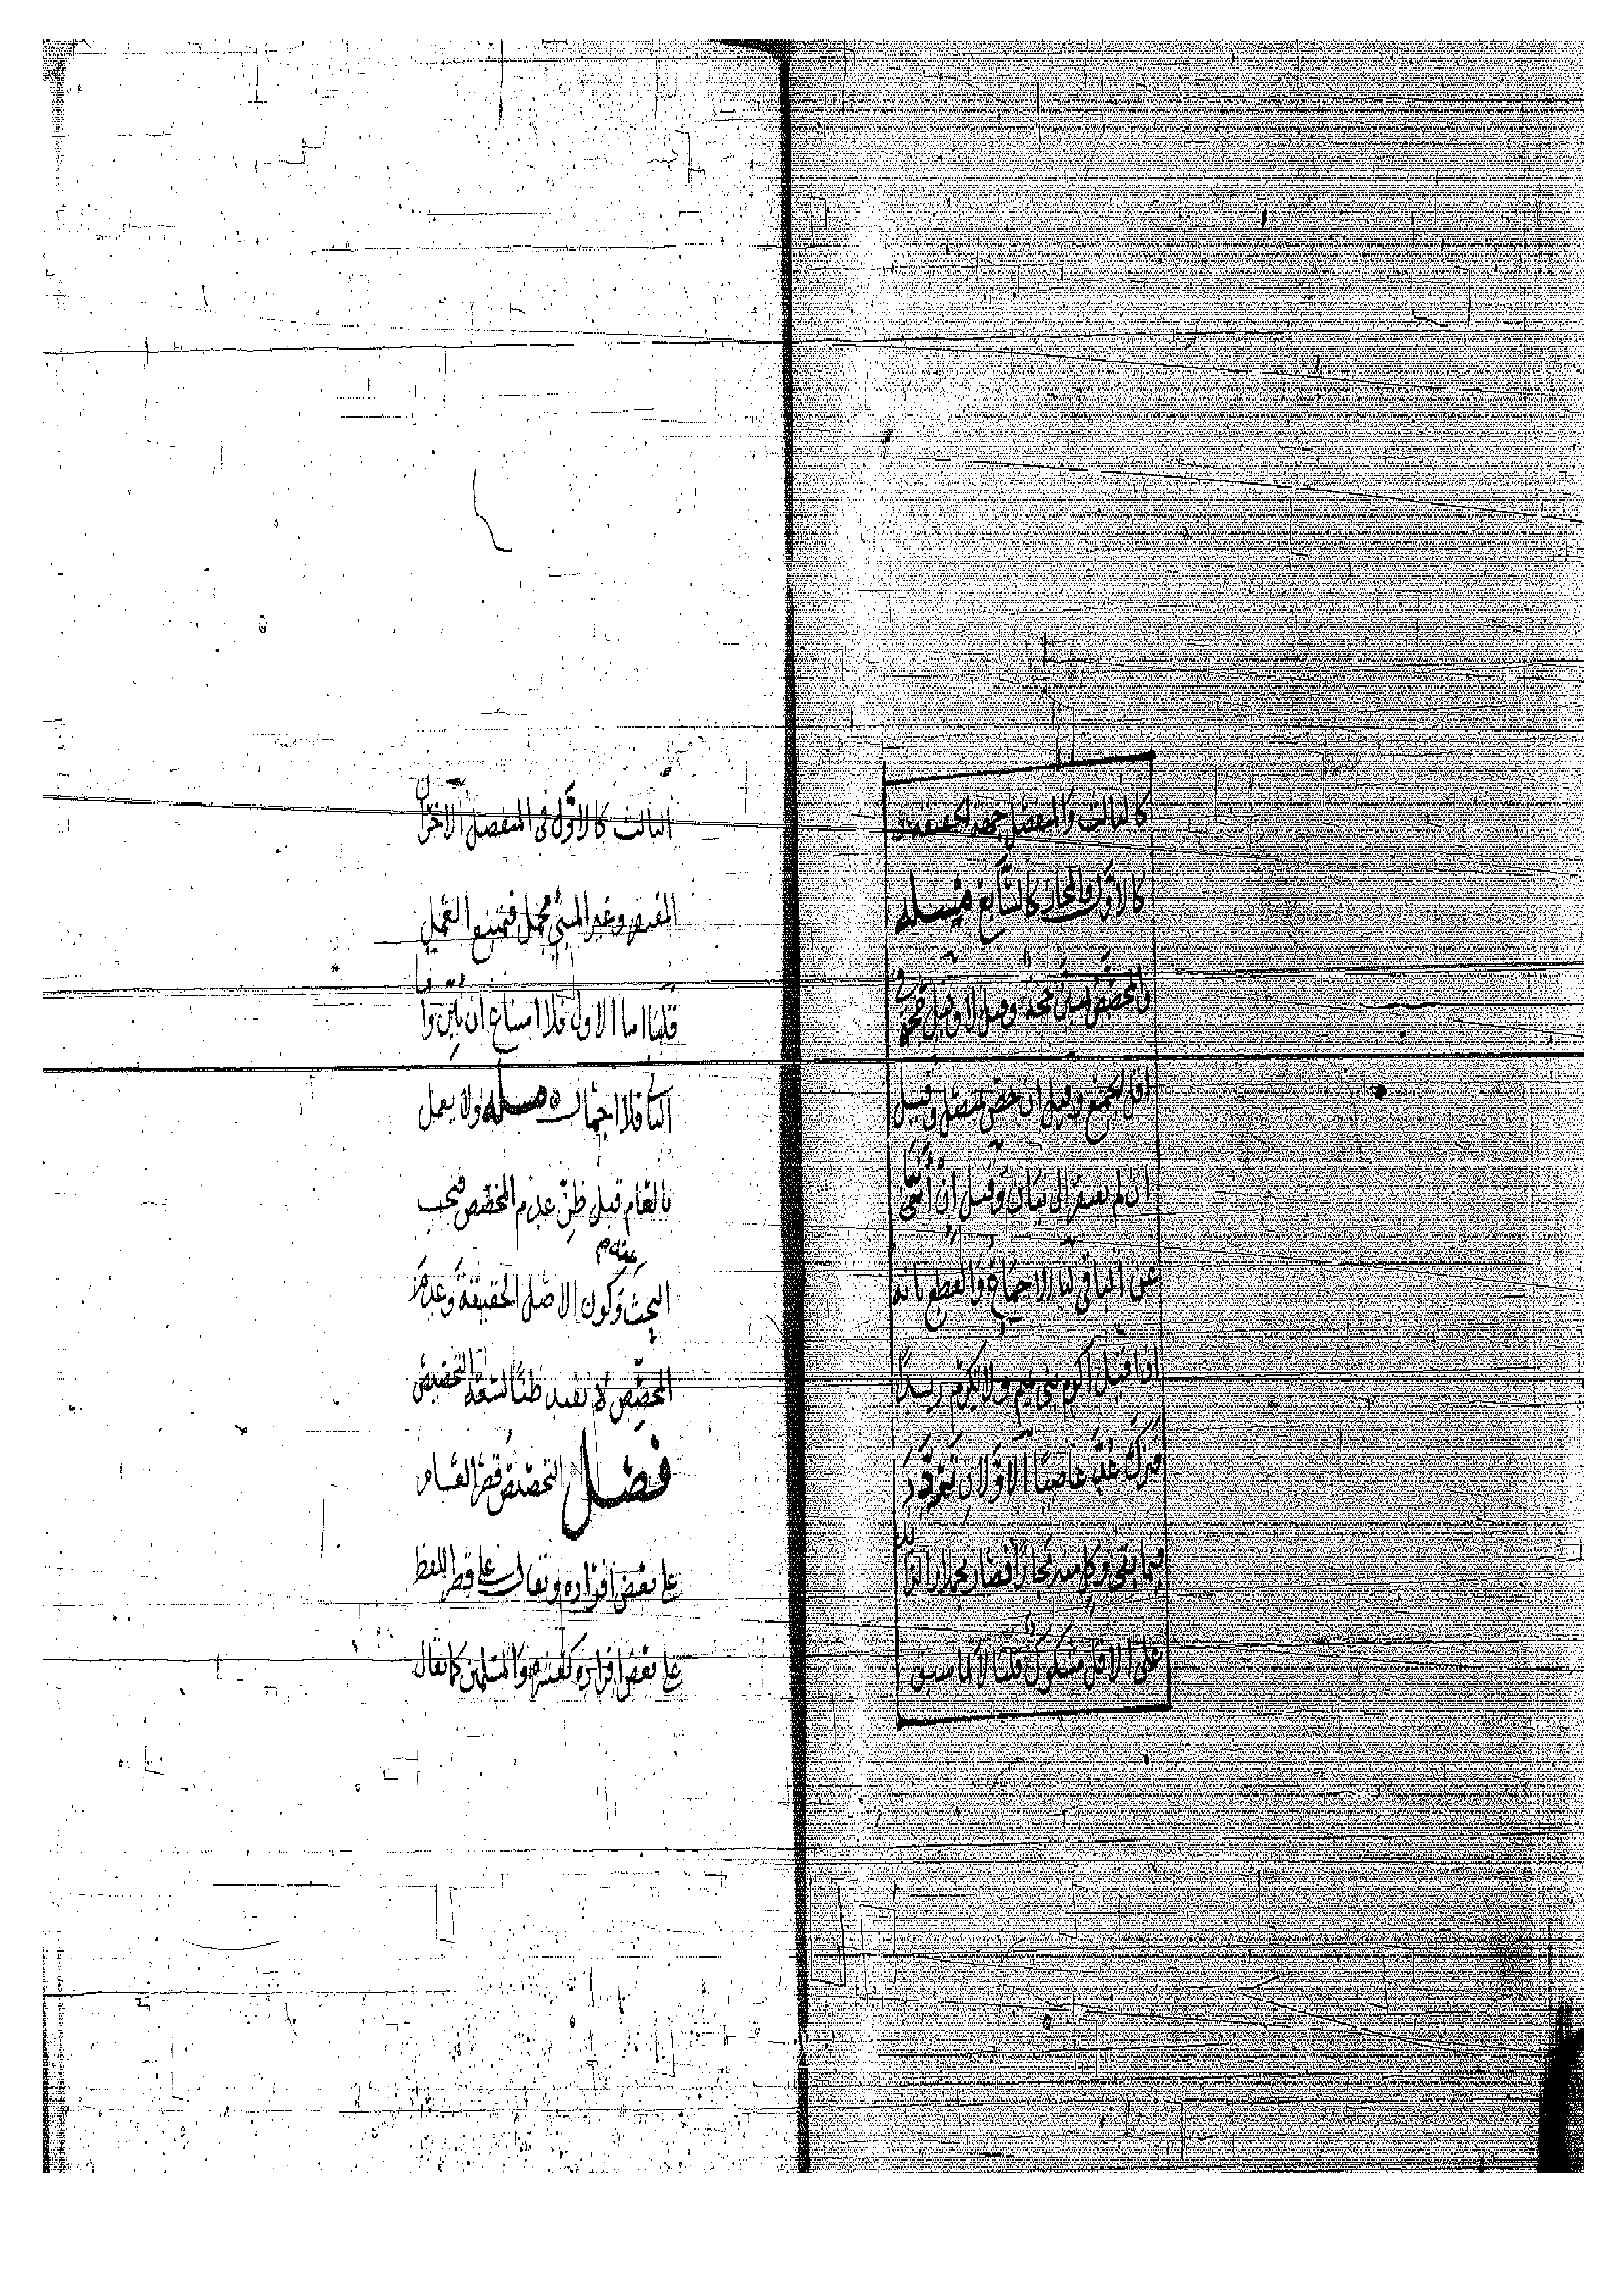 كالثالث والمنفصل حجة الحقيقة
كالاول والمجاز كالسابع مسئلة
والمخصص بمبين حجة وقيل لا وقيل حجة في
اقل الجمع وقيل ان خص بمتصل وقيل
ان لم يفتقر الى بيان وقيل ان انبا
عن الباقي لنا الاجماع والقطع بانه
اذا قيل اكرم بني تميم ولا تكرم زيدا
فترك عد عاصيا الاولان تردد
فيما بقي وكل منه مجازا فصار مجملا الزائد
على الاقل مشكوك قلنا لا لما سبق
الثالث كالاول في المنفصل الاخران
المفتقر وغير المنبئ مجمل فيمتنع العمل
قلنا اما الاول فلا امتناع ان بين واما
الثاني فلا اجمال مسئلة ولا يعمل
بالعام قبل ظن عدم المخصص فيجب
البحث عنه وكون الاصل الحقيقة وعدم
المخصص لا يفيد ظنا لسعة التخصيص
فصل التخصيص قصر العام
على بعض افراده ويقال على قصر اللفظ
على بعض افراده كعشرة والمسلمين كما يقال